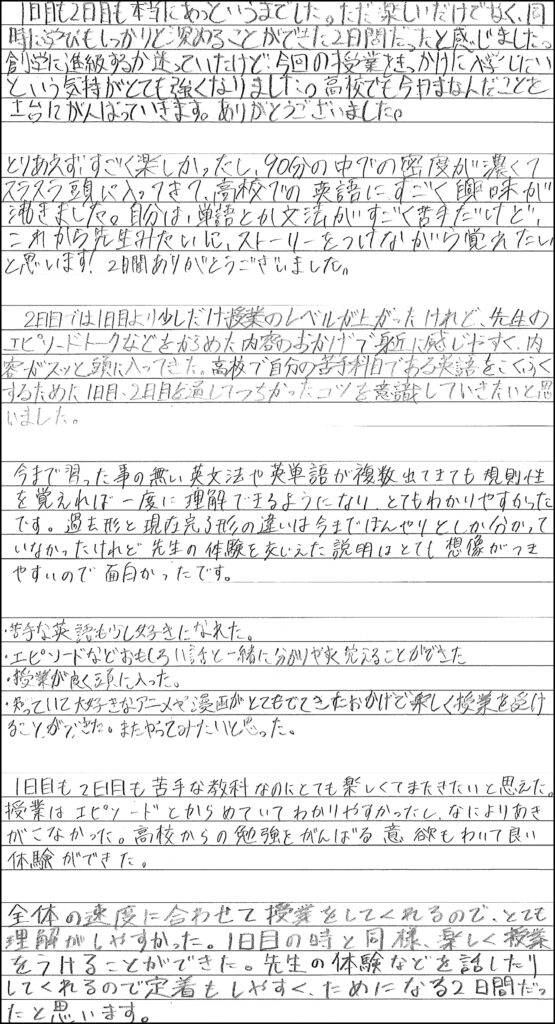 1日目も2日目も本当にあっというまでした。ただ楽しいだけでなく、同
時に学びもしっかりと深めることができた2日間だったと感じました。
創学に進級するか迷っていたけど今回の授業をきっかけに入学したい
という気持がとても強くなりました。高校でも今日まなんだことを
土台にがんばっていきます。ありがとうございました。
とりあえず、すごく楽しかったし、90分の中での密度が濃くて
スラスラ頭に入ってきて、高校での英語にすごく興味が
沸きました。自分は、単語とか文法がすごく苦手だけど、
これから先生みたいに、ストーリーをつけながら覚えたい
と思います！2日間ありがとうございました。
2日目では1日目より少しだけ授業のレベルが上がったけれど、先生の
エピソードトークなどをからめた内容のおかげで身近に感じやすく、内
容がスッと頭に入ってきた。高校で自分の苦手科目である英語をこくふく
するために1日目・2日目を通してつちかったコツを意識していきたいと思
いました。
今まで習った事の無い英文法や英単語が複数出てきても規則性
を覚えれば一度に理解できるようになり、とてもわかりやすかった
です。過去形と現在完了形の違いは今までぼんやりとしか分かって
いなかったけれど先生の体験を交じえた説明はとても想像がつき
やすいので面白かったです。
・苦手な英語も少し好きになれた。
・エピソードなどおもしろい話と一緒に分かりやすく覚えることができた
・授業が良く頭に入った。
・知っていて大好きなアニメや漫画がとてもでてきたおかげで楽しく授業を受け
ることができた。またやってみたいと思った。
1日目も2日目も苦手な教科なのにとても楽しくてまたきたいと思えた。
授業はエピソードとからめていてわかりやすかったし、なによりあき
がこなかった。高校からの勉強をがんばる意欲もわいて良い
体験ができた。
全体の速度に合わせて授業をしてくれるので、とても
理解がしやすかった。1日目の時と同様、楽しく授業
をうけることができた。先生の体験などを話したり
してくれるので定着もしやすく、ためになる2日間だっ
たと思います。